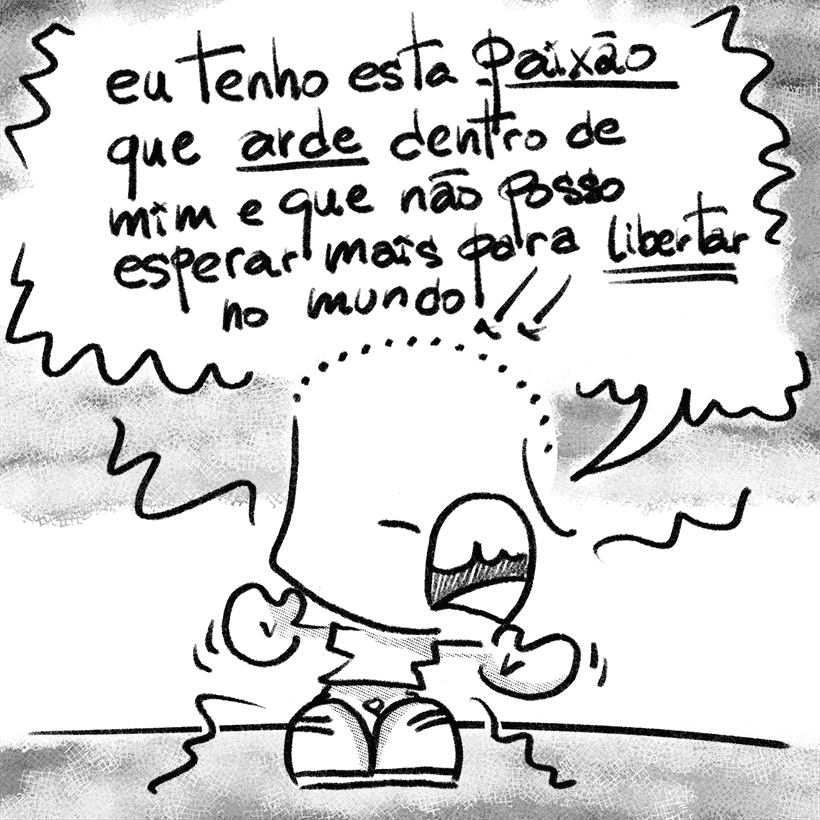 eu tenho esta paixão
que arde dentro de
mim e que não posso
esperar mais para libertar
no mundo!